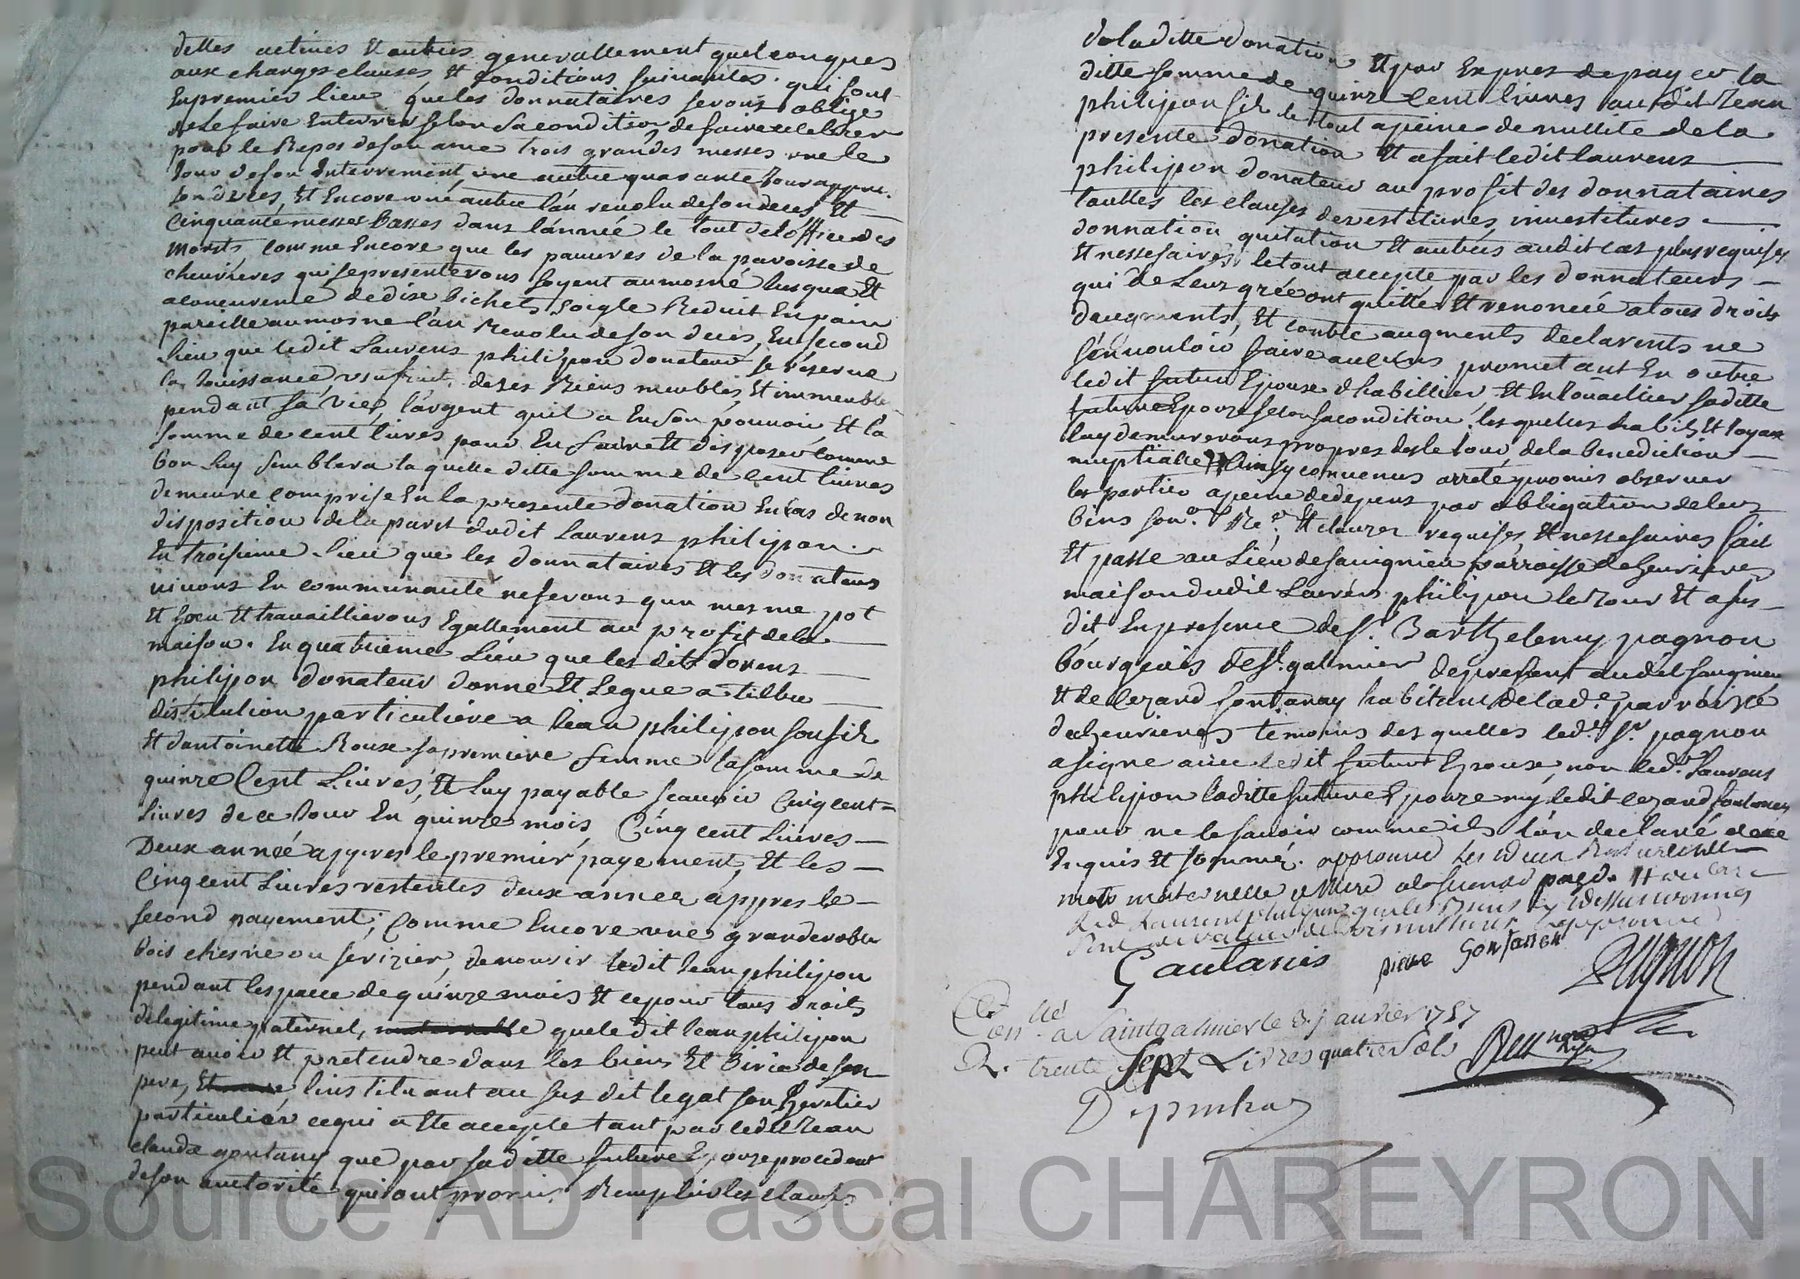 delles actives Et autres generallement quelconques
aux charges clauses Et Conditions suivantes. qui sont
En premier lieu que les donnataires seront obligé
de le faire Enterrer selon sa condition, de faire celebrer
pour le Repos de son ame trois grandes messes une le
Jour de son Enterrement, une autre quarante Jour appres
son deces, Et Encore une autre l'an revolu de son deces, Et
Cinquante messes Basses dans l'année le tout de loffice des
Morts, comme Encore que les pauvres de la paroisse de
chevrieres qui se presenteront soyent aumosné Jusqua Et
a concurence de dise bichets soigle Reduit En pain
pareille aumosne l'an Revolu de son deces, En second
lieu que ledit Laurens philipon donateur se réserve
la Jouissance usufruit de ses Biens meubles, Et immeubles
pendant sa vie, l'argent quil a En son pouvoir Et la
somme de cent livres pour En faire Et disposer comme
bon luy semblera la quelle ditte somme de cent livres
demeure comprise En la presente donation En cas de non
disposition de la part dudit Laurens philipon.
En troisieme lieu que les donnataires Et les donateurs
vivront En communauté ne feront qun mesme pot
Et feu Et travailleront Egallement au profit de la
maison. En quatrieme Lieu que ledit Lorens
philipon donateur donne Et Legue a tiltre
distitution particuliere a Jean philipon son fils
Et dantoinette Roux sa premiere femme la somme de
quinze Cent Livres, Et luy payable scavoir Cinq cent
Livres de ce Jour En quinze mois, Cinq cent Livres
Deux année appres le premier payement, Et les
Cinq cent Livres restentes deux annee appres le
second payement; Comme Encore une grande robe
bois chesne ou serizier, de nourir ledit Jean philipon
pendant lespace de quinze mois Et ce pour tous droits
de legitime paternel, que le dit Jean philipon
peut avoir Et pretendre dans les biens Et Oirie de son
pere, linstituant au sus dit legat son heretier
particulier ce qui a Ete accepte tant par ledit Jean
claude gontany que par sa ditte future Epouze procedent
de son auctorité qui ont promis Remplir les clauses
de la ditte donation Et par Expres de payer la
ditte somme de quinze Cent livres au dit Jean
philipon fils le tout a peine de nullité de la
presente donation Et a fait ledit laurens
philipon donateur au profit des donnataires
touttes les clauses devestitures, investitures
donnation quitation Et autres audit cas plus requises
Et nessesaires, le tout accepté par les donnateurs
qui de Leur grée ont quittés Et renoncé a tous droits
daugments, Et contre augments declarents ne
sen vouloir faire aucuns prometant En outre
ledit futur Epoux d habillier, Et Enjouaillier sa ditte
future Epouze selon sa condition, les quelles habits Et Joyaux
luy demureront propres des le Jour de la Benediction
nuptialle, Ainsy convenus arreté promis observer
les parties a peine de depens par obligation de leur
biens son.º Re.º Et clauses requises, Et nessesaires fait
Et passé au Lieu de sauignieu parroisse de Chevrieres
maison dudit Laurens philipon le Jour Et a sus
dit En presence de Sr. Barthelemy pagnon
bourgeois de St. galmier de present audit sauignieu
Et de Cezard fontanay habitant de la de. parroisse
de chevrieres temoins des quelles led.t Sr. pagnon
a signe avec Ledit futur Epoux, non led.t Laurens
philipon la ditte future Epouze ny ledit cezard fontanay
pour ne le savoir comme ils l'on declaré de ce
Enquis Et sommé. approuvé les deux
mots maternelle
Gaulanis pierre Gontanen Pagnon
Con.lle a Saint galmier le 8 janvier 1757
R. trente sept Livres quatre sols